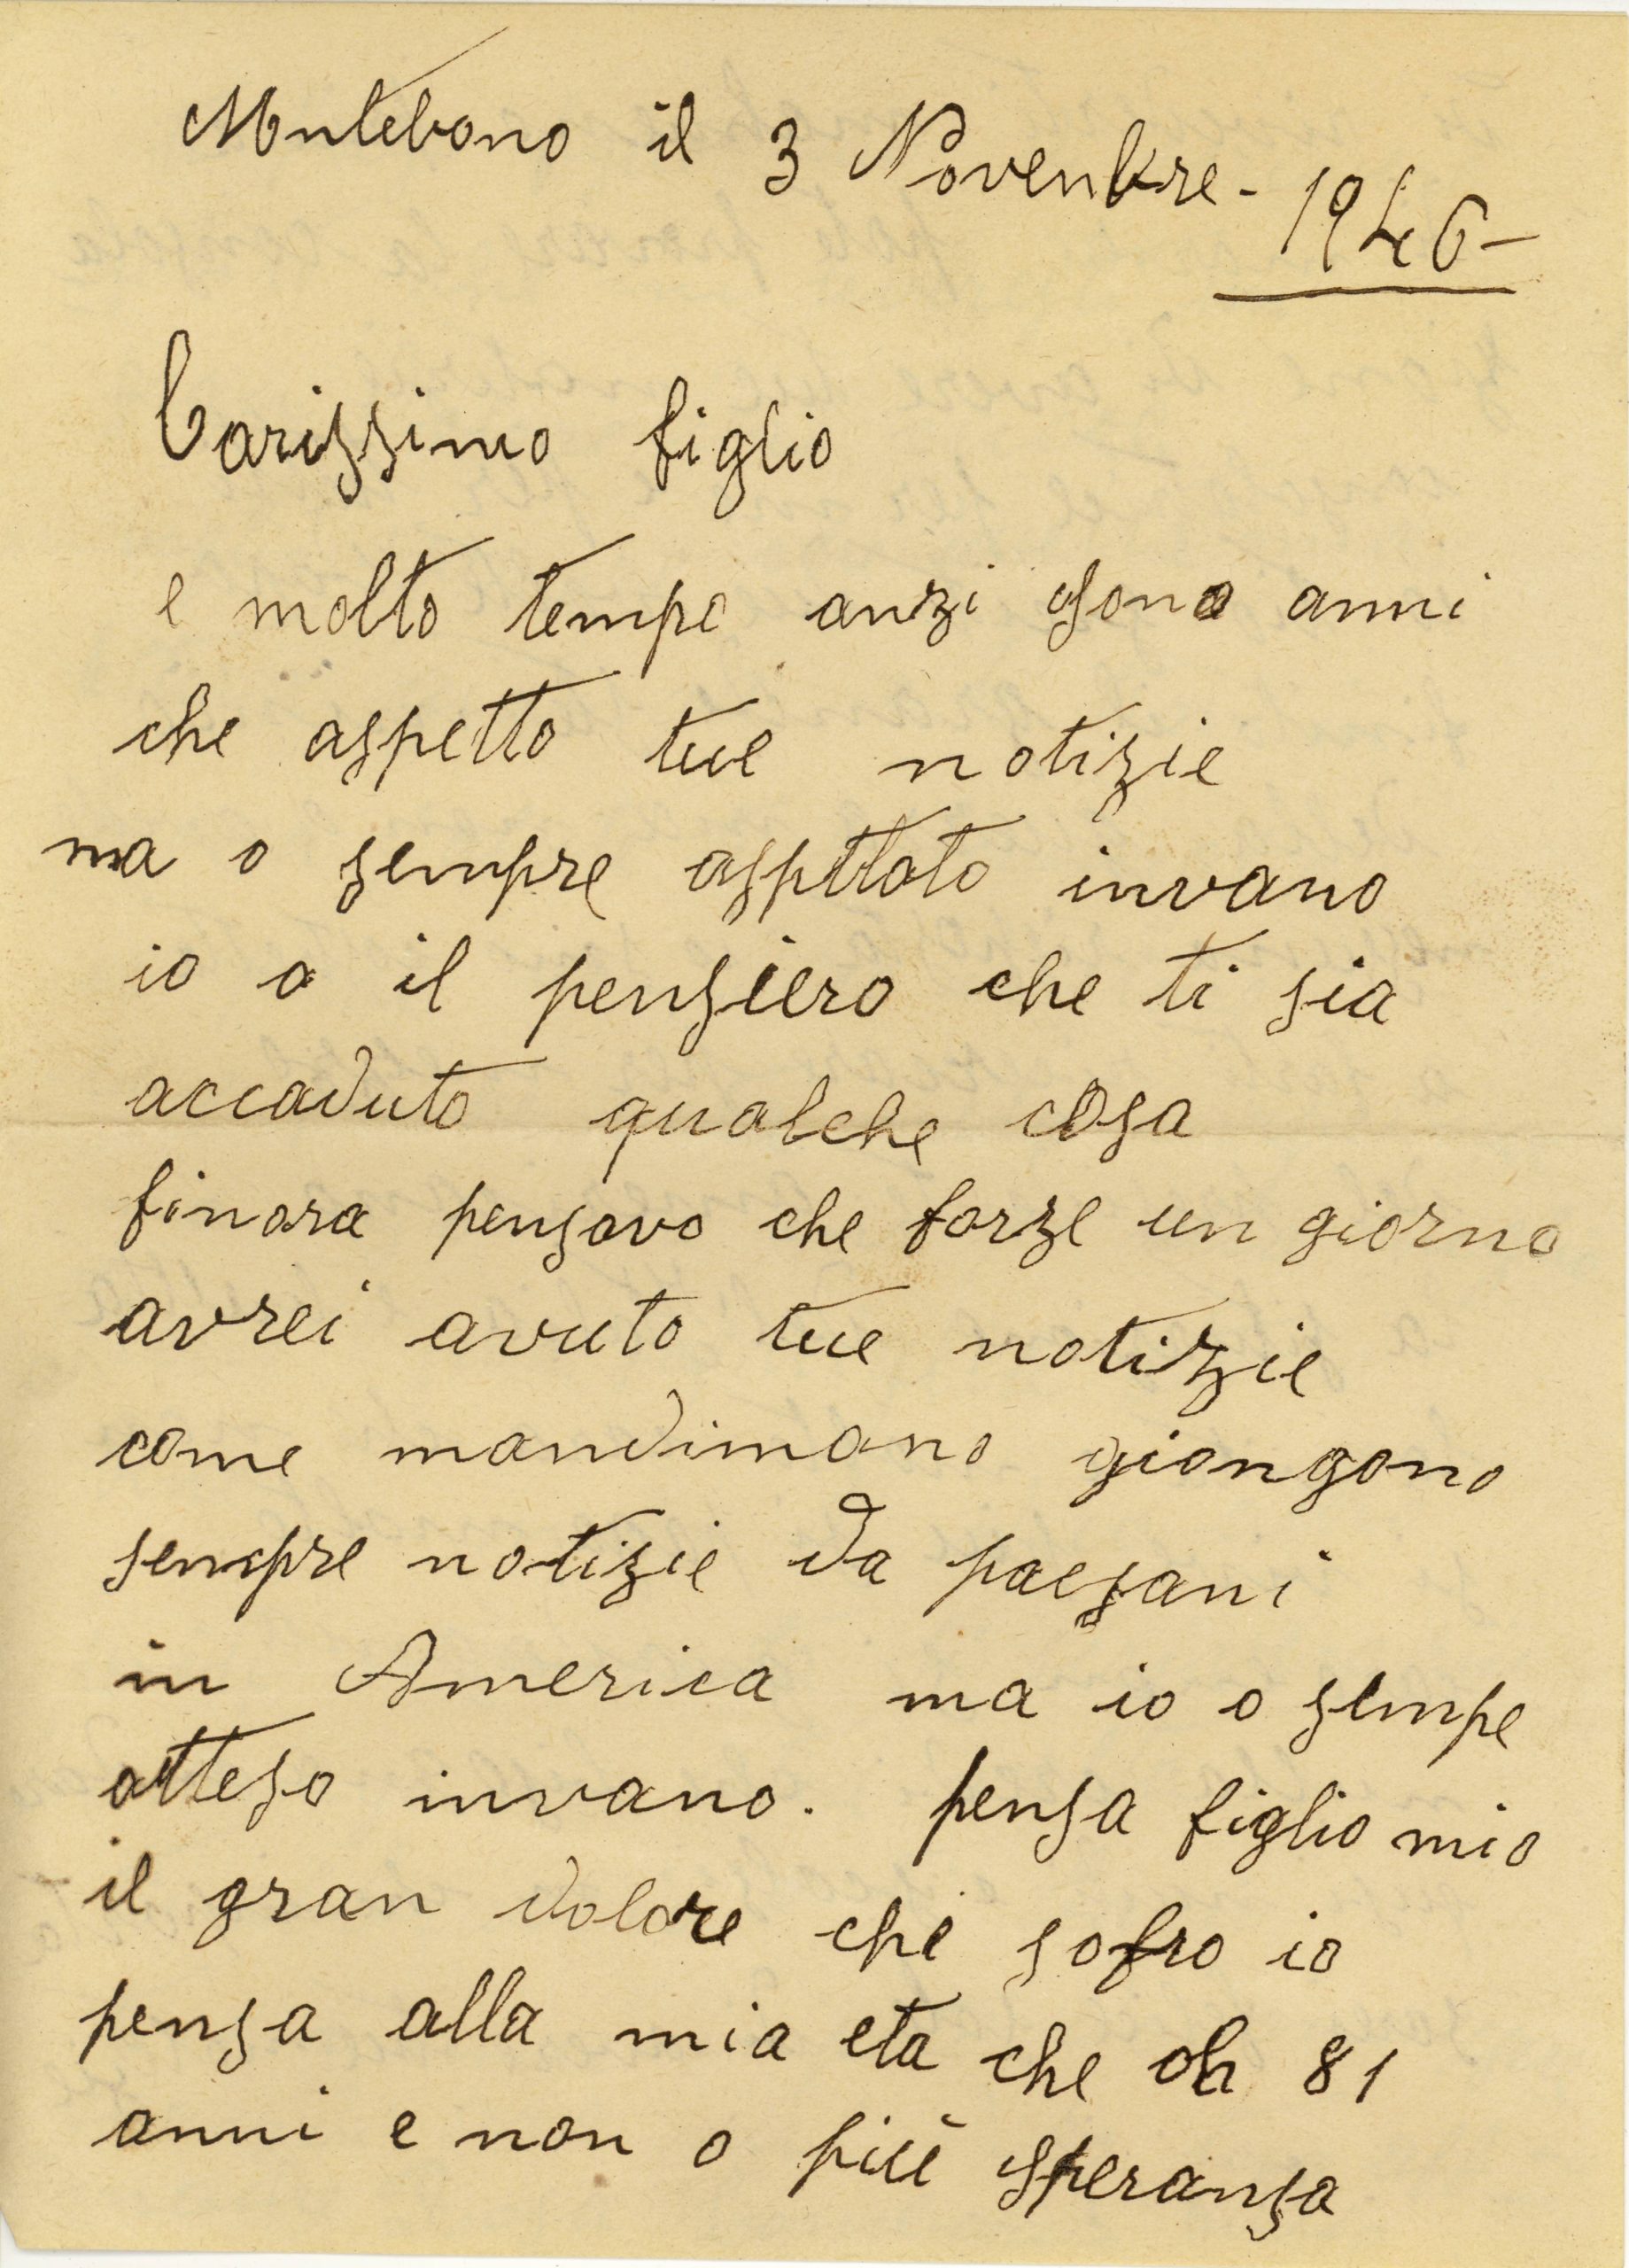 Montebono il 3 Novenbre - 1946 -
Carissimo figlio
e molto tempo anzi sono anni
che aspetto tue notizie
ma o sempre aspettato invano
io o il pensiero che ti sia
accaduto qualche cosa
finora pensavo che forze un giorno
avrei avuto tue notizie
come mandimano giongono
sempre notizie da paesani
in America ma io o sempe
atteso invano. pensa figlio mio
il gran dolore che sofro io
pensa alla mia eta che oh 81
anni e non o più speransa